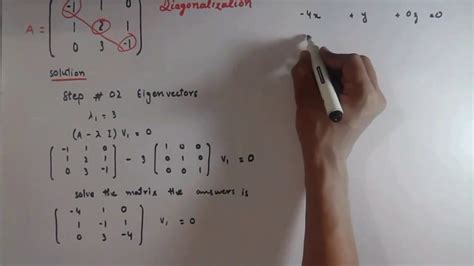 Diagonalization
A = ( -1 1 0
1 2 1
0 3 -1 )
solution
Step # 02 Eigenvectors
λ₁ = 3
(A - λ I) V₁ = 0
( -1 1 0
1 2 1
0 3 -1 ) - 3 ( 1 0 0
0 1 0
0 0 1 ) V₁ = 0
solve the matrix the answers is
( -4 1 0
1 -1 1
0 3 -4 ) V₁ = 0
-4x + y + 0z = 0